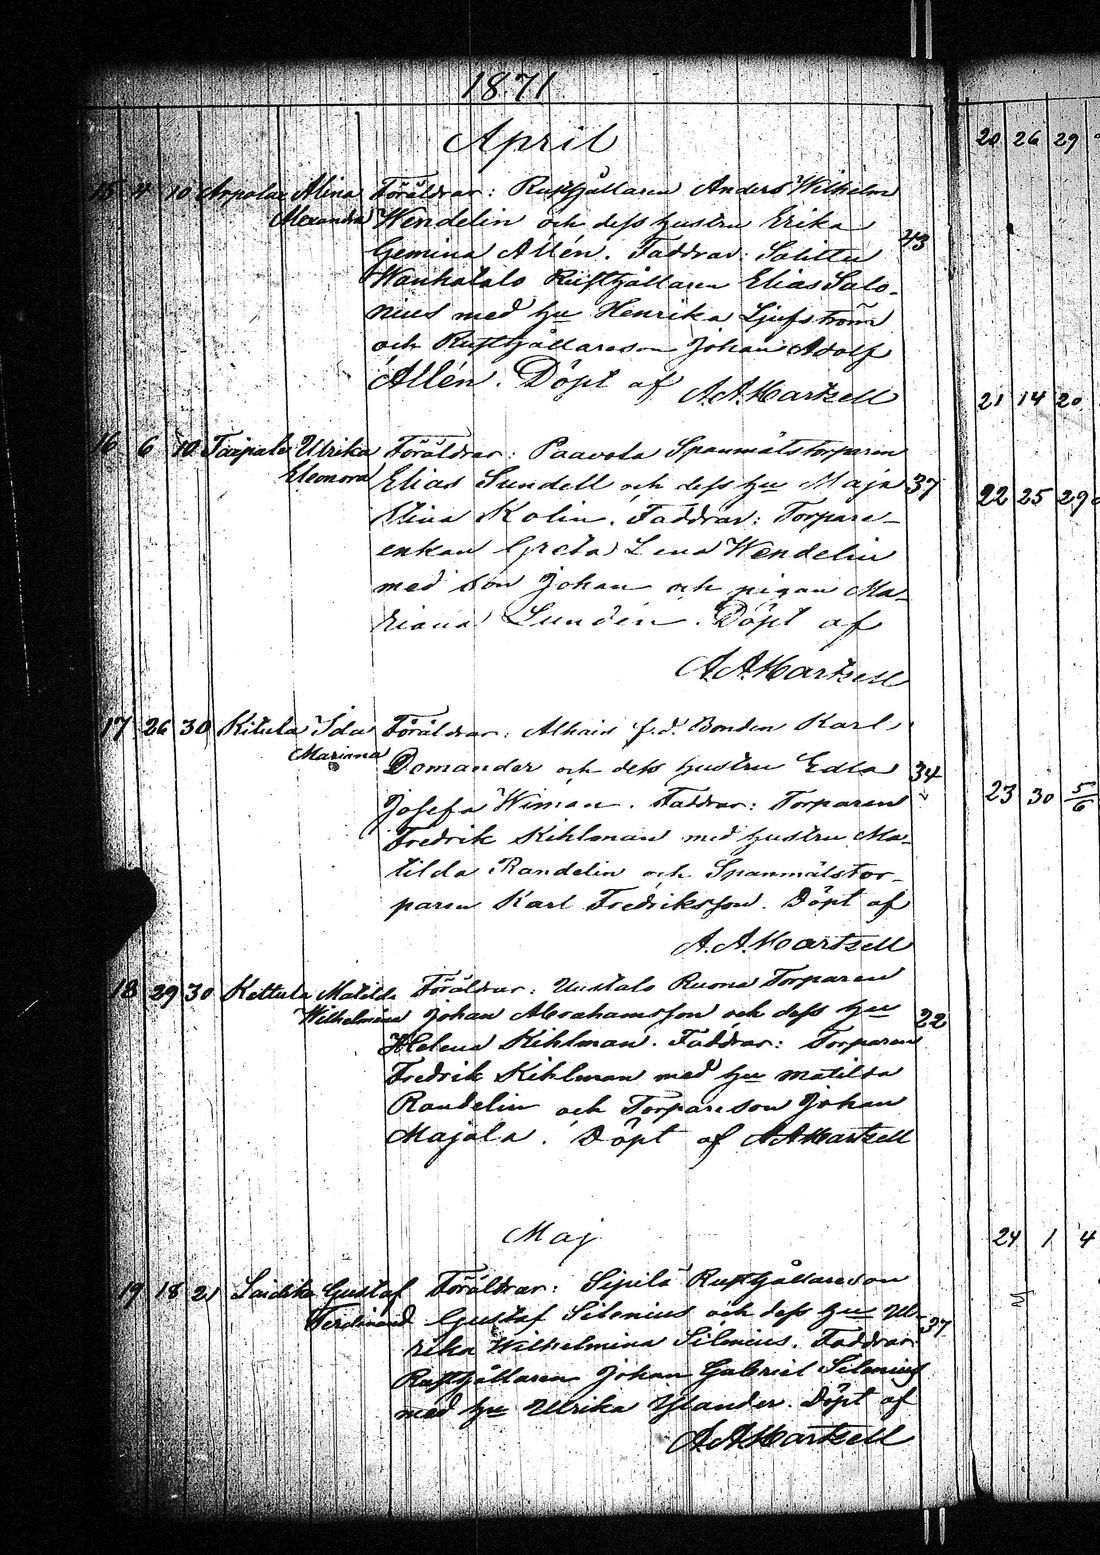 1871
April
15 4 10 Arpola Alina Föräldrar: Rusthållaren Anders Wilhelm
Alexandra Wendelin och dess hustru Erika
43
Gemina Allén. Faddrar: Salittu
Wanhatalo Rusthållaren Elias Salo-
nius med hu Henrika Ljufström
och Rusthållareson Johan Adolf
Allén. Döpt af A. A. Hartzell
16 6 10 Taipale Ulrika Föräldrar: Paavola Spanmålstorparen
Eleonora Elias Sundell och dess hu Maja 37
Stina Kolin. Faddrar: Torpare-
enkan Greta Lena Wendelin
med son Johan och pigan Ma-
riana Lundén. Döpt af
A. A. Hartzell
17 26 30 Kitula Ida Föräldrar: f.d. Bonden Karl
Mariana Domander och dess hustru Edla 34
Josefa Wiman. Faddrar: Torparen
Fredrik Kihlman med hustru Ma-
tilda Randelin och Spanmålstor-
paren Karl Fredriksson. Döpt af
A. A. Hartzell
18 29 30 Kettula Matilda Föräldrar: Uustalo Ruona Torparen
Wilhelmina Johan Abrahamsson och dess hu 22
Helena Kihlman. Faddrar: Torparen
Fredrik Kihlman med hu Matilda
Randelin och Torpareson Johan
Majala. Döpt af A A Hartzell
Maj
19 18 21 Gustaf Föräldrar: Sipilä Rusthållareson
Ferdinand Gustaf Silenius och dess hu Ul- 37
rika Wilhelmina Silenius. Faddrar
Rusthållaren Johan Gabriel Silenius
med hu Ulrika Ylander. Döpt af
A A Hartzell
20 26 29
21 14 20
22 25 29
23 30 5/6
24 1 4